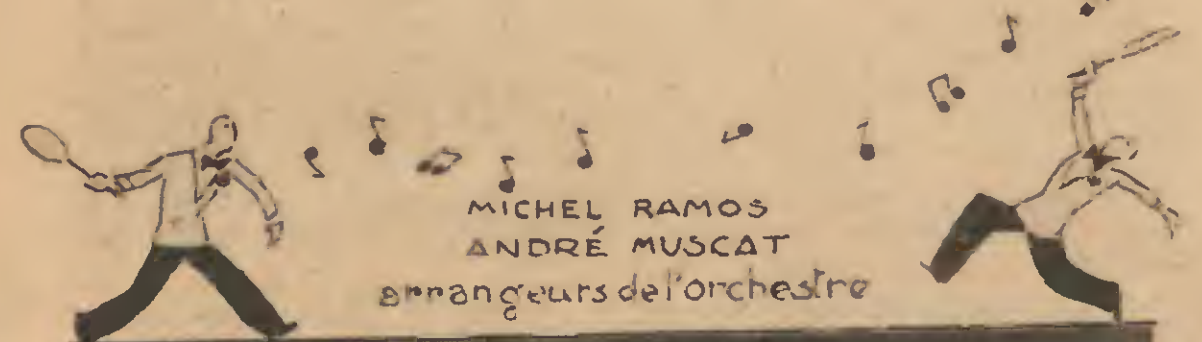 MICHEL RAMOS
ANDRÉ MUSCAT
arrangeurs de l'orchestre